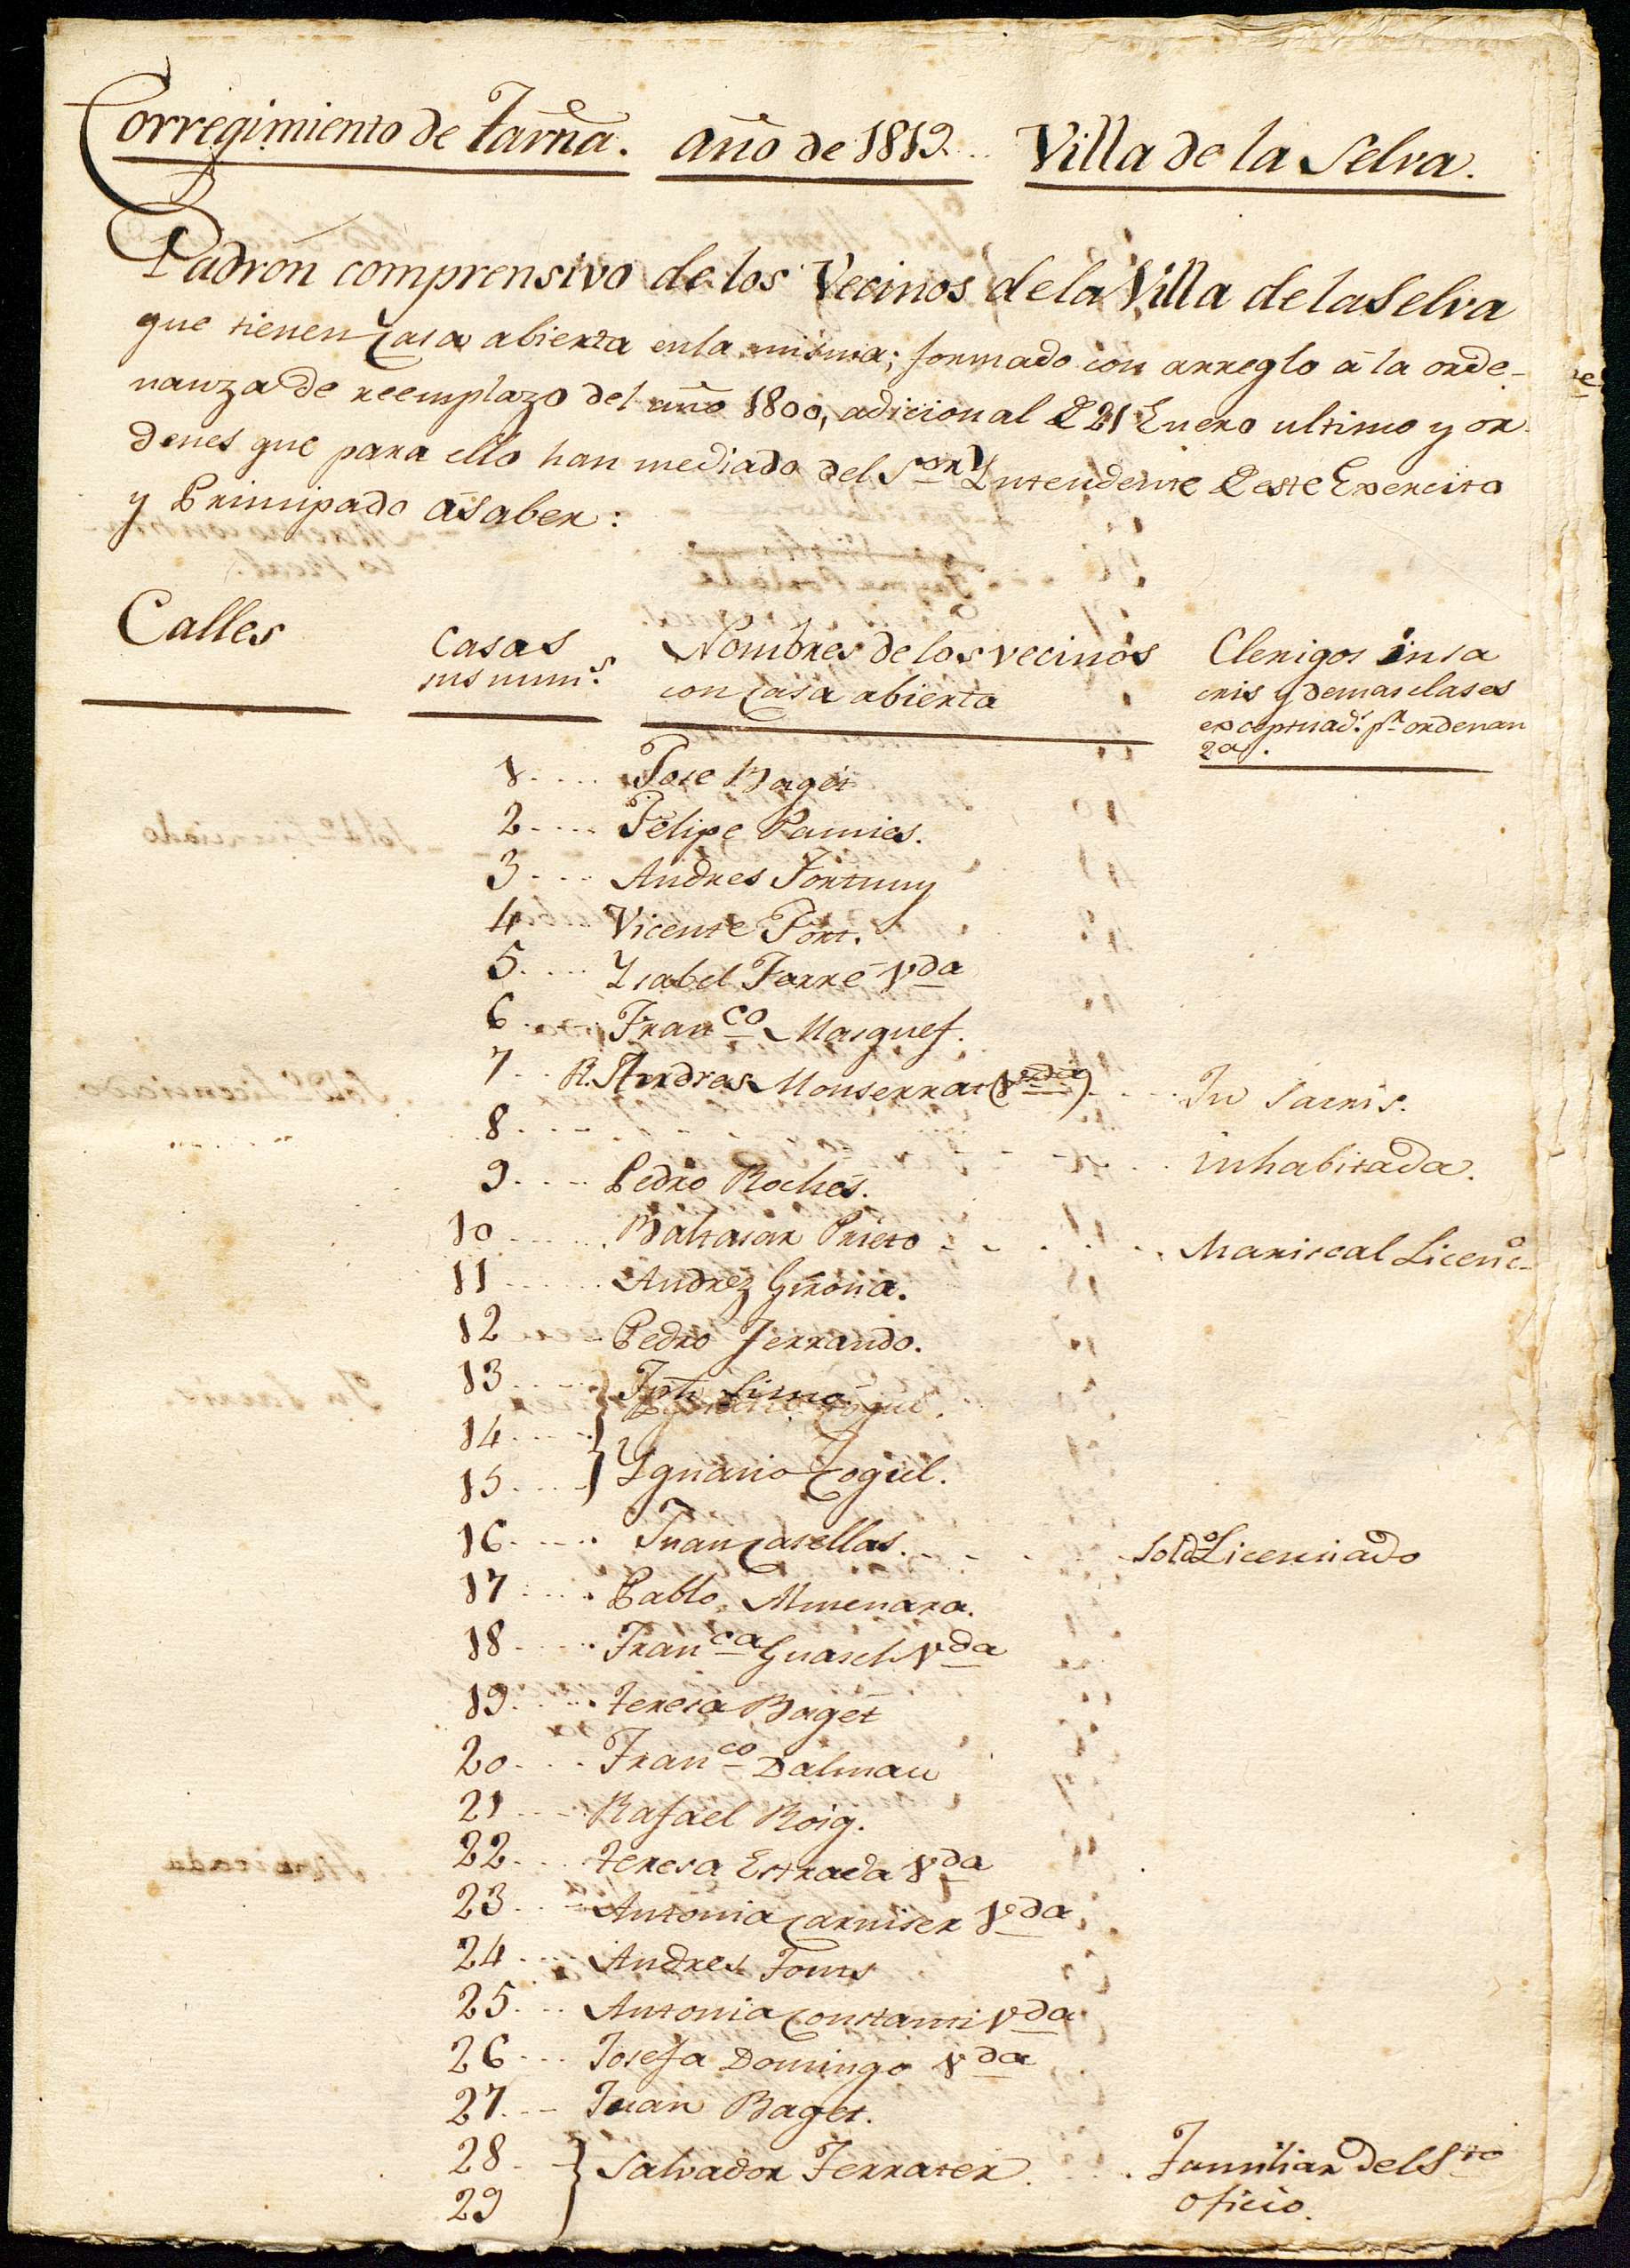 Corregimiento de Tarña. año de 1819. Villa de la Selva.
Padron comprensivo de los Vecinos de la Villa de la Selva
que tienen Casa abierta en la misma; formado con arreglo à la orde-
nanza de reemplazo del año 1800, adicional de 21 Enero ultimo y or
denes que para ello han mediado del Sor Yntendente de este Exercito
y Principado àsaber:
Calles
Casas
sus nums.
Nombres de los vecinos
con Casa abierta
Clerigos insa
cris y demas clases
exceptuads. pr ordenan
zas.
1 .... Jose Baget
2 .... Felipe Pamies.
3 ... Andres Fortuny
4 Vicente Font.
5 .... Ysabel Farré Vda
6 .... Franco Masquef.
7 .. R. Andres Monserrat .... In Sacris.
8 .... inhabitada.
9 .... Pedro Rochés.
10 ..... Baltasar Prieto ..... Mariscal Licenco
11 ..... Andrez Girona.
12 .... Pedro Ferrando.
13 .... Jph Simó
14 ....
15 .... } Ygnacio Cogul.
16 .... Juan Casellas. .... Soldo Licenciado
17 .... Pablo Almenara.
18 .... Franca Guasch Vda
19 .... Teresa Baget
20 ... Franco Dalmau
21 ... Rafael Roig.
22 ... Teresa Estrada Vda
23 ... Antonia Carniser Vda
24 ... Andres Fonts
25 ... Antonia Constanti Vda
26 ... Josefa Domingo Vda
27 .. Juan Baget.
28 . } Salvador Ferrater . . Familiar del Sto
29 oficio.